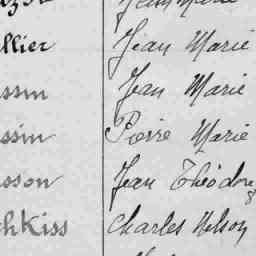 Jean Marie
llier Jean Marie
ssin Jean Marie
ssin Pierre Marie
sson Jean Théodore
hkiss Charles Nelson